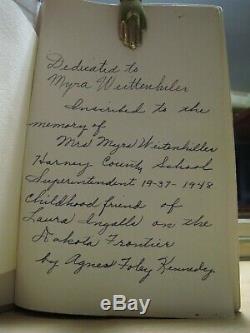 Dedicated to
Myra Weittenhiler
Inscribed to the
memory of
Mrs Myra Weitenhiller
Harney County School
Superintendent 1937-1948
Childhood friend of
Laura Ingalls on the
Dakota Frontier
by Agnes Foley Kennedy